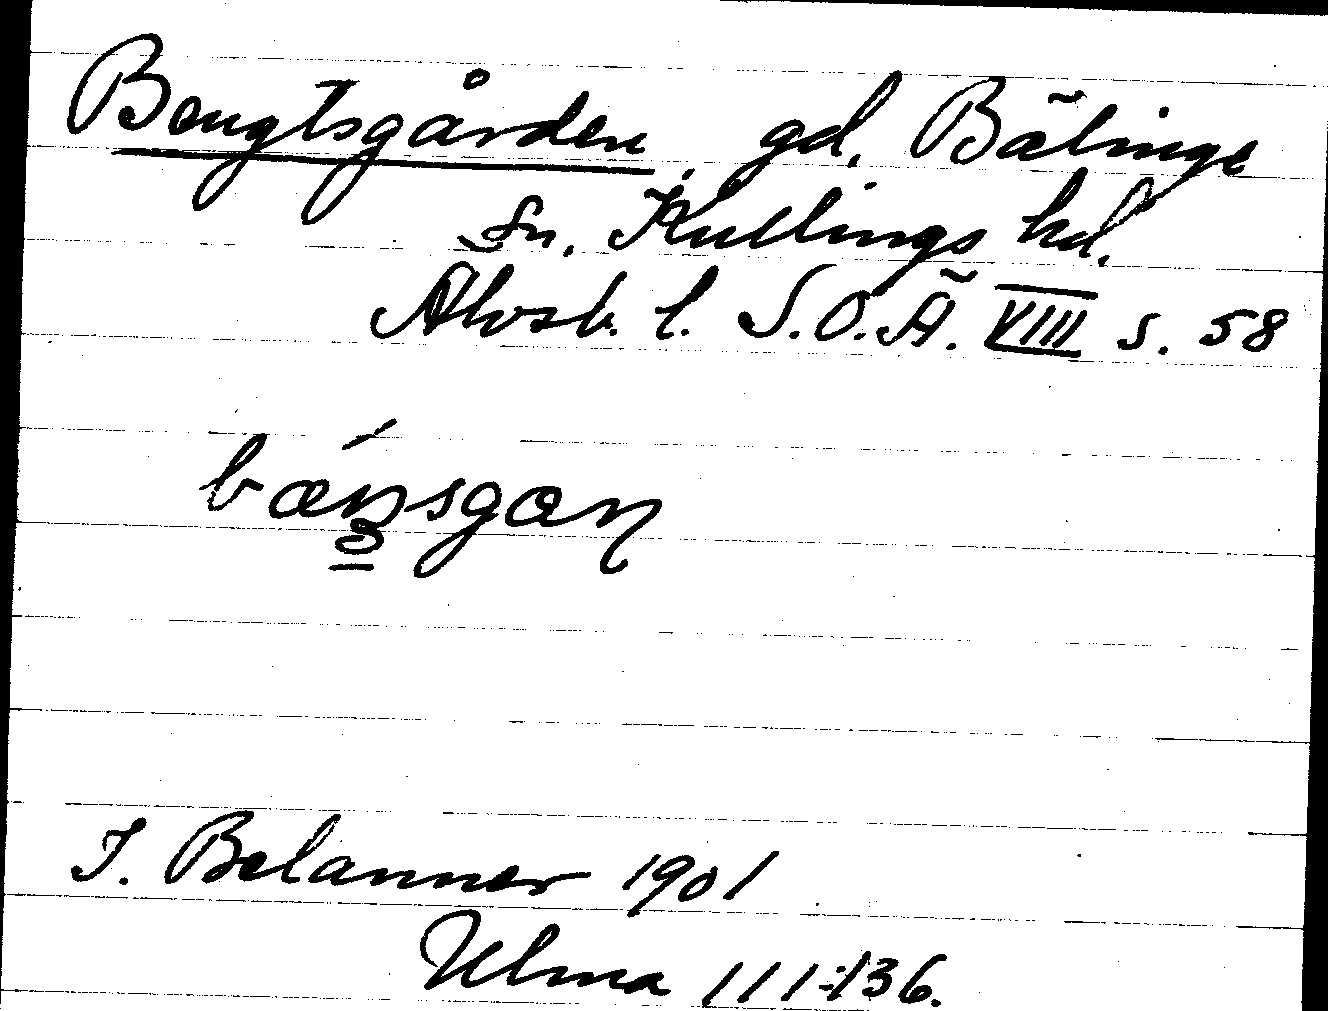 Bengtsgården, gd. Bälinge
sn. Kullings hd.
Älvsb. l. S.O.Ä. VIII s. 58
bǽn̥sgaɳ
I. Belanner 1901
Ulma 111:136.